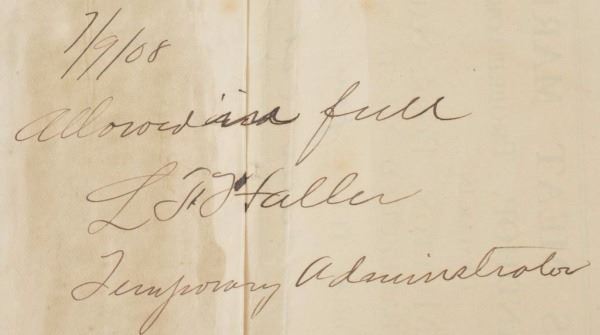 7/9/08
Allowed in full
L F Haller
Temporary Adminstrator